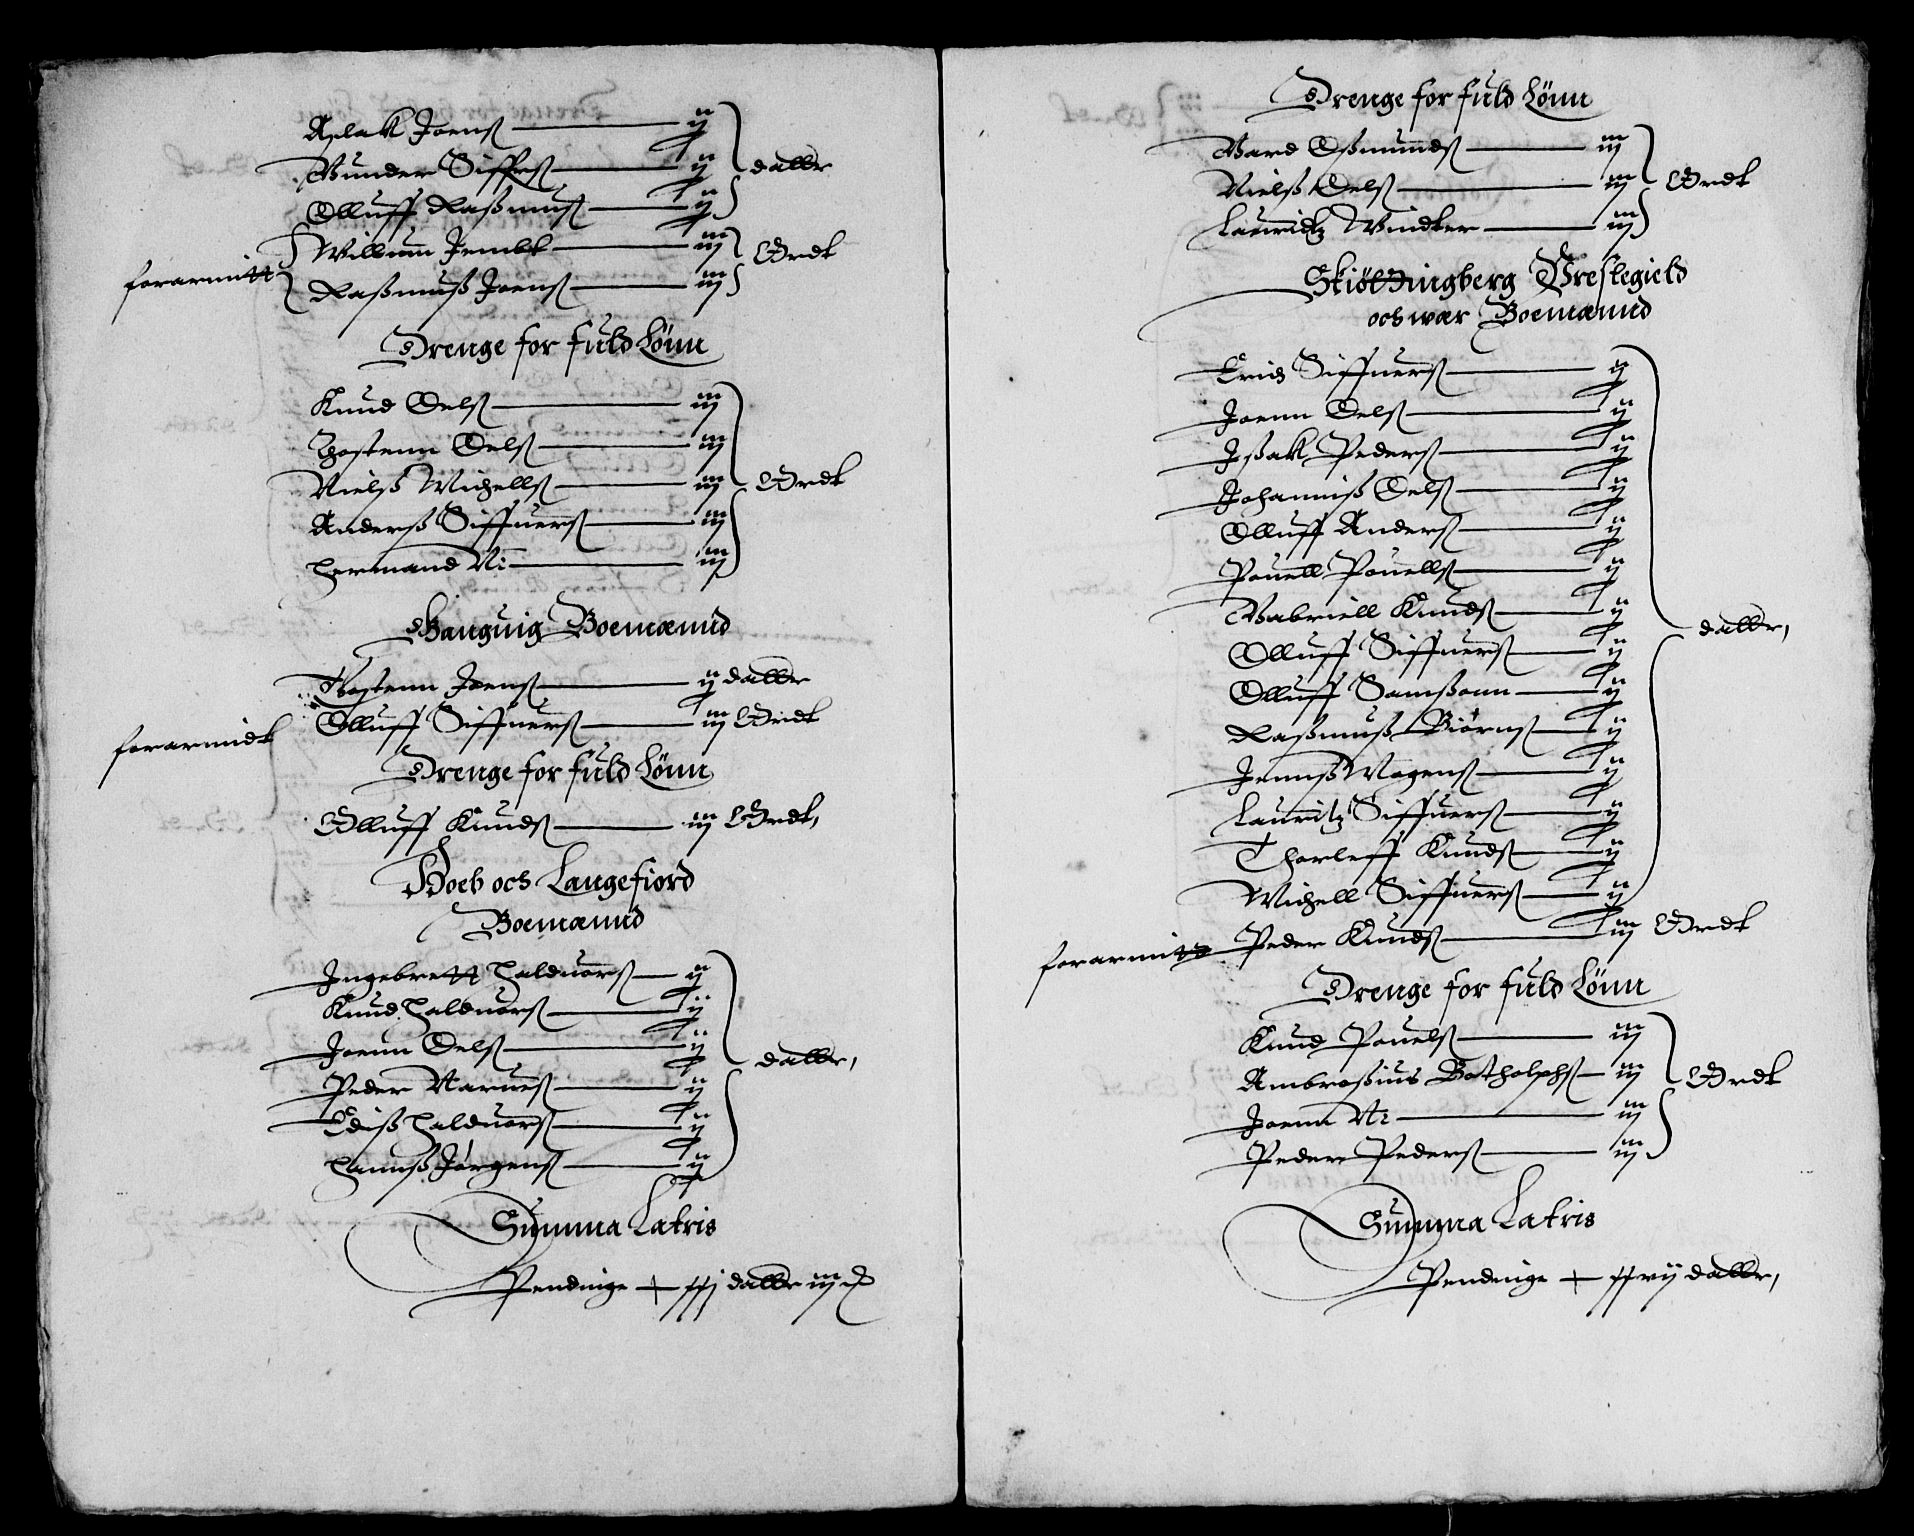 Aslak Joens — ij
Gunder Siffrs — ij daller
Olluff Rasmus — ij
Willum Jembt — iij Ordt
forarmitt
Rasmuß Joens — iij
Drenge for fuld Lønn
Knud Oels — iij
Thostenn Oels — iij
Nielß Michells — iij Ordt
Anderß Siffuers — iij
Hermand N: — iij
Ganguig Boemænnd
Thostenn Joens — ij daller
forarmidt Olluff Siffuers — iij Ordt
Drenge for fuld Lønn
Olluff Knuds — iij Ordt,
Boeb och Langefiord
Boemænnd
Ingebrett Halduors — ij
Knud Halduors — ij
Joenn Oels — ij daller,
Peder Narues — ij
Ediß Halduors — ij
Hannß Jørgens — ij
Summa Latris
Pendinge + xxxj daller iij ß
Drenge for fuld Lønn
Gard Oßmunds — iij
Nielß Oels — iij Ordt
Lauridtz Windter — iij
Skiøldtingberg Prestegield
och wær Boemænnd
Erich Siffuers — ij
Joenn Oels — ij
Jsßak Peders — ij
Johanniß Oels — ij
Olluff Anders — ij
Pouell Pouells — ij
Gabriell Knuds — ij daller,
Olluff Siffuers — ij
Olluff Samßonn — ij
Rasmuß Biørns — ij
Jennß Mogens — ij
Lauritz Siffuers — ij
Tharleff Knuds — ij
Michell Siffuers — ij
forarmitt Peder Knuds — iij Ordt
Drenge for fuld Lønn
Knud Pouels — iij
Ambroßius Botholphs — iij Ordt
Joenn N: — iij
Peder Peders — iij
Summa Latris
Pendinge + xxxvij daller,